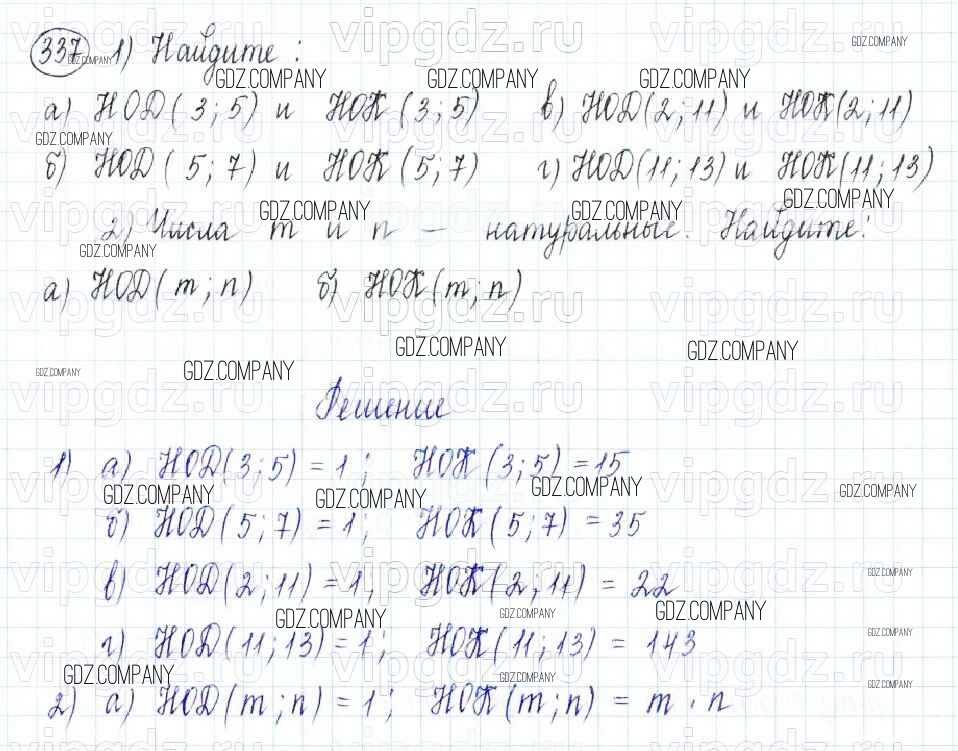 337 1) Найдите:
а) НОД(3;5) и НОК(3;5) в) НОД(2;11) и НОК(2;11)
б) НОД(5;7) и НОК(5;7) г) НОД(11;13) и НОК(11;13)
2) Числа m и n — натуральные. Найдите:
а) НОД(m;n) б) НОК(m;n)
Решение
1) а) НОД(3;5) = 1; НОК(3;5) = 15
б) НОД(5;7) = 1; НОК(5;7) = 35
в) НОД(2;11) = 1; НОК(2;11) = 22
г) НОД(11;13) = 1; НОК(11;13) = 143
2) а) НОД(m;n) = 1; НОК(m;n) = m · n
vipgdz.ru
GDZ.COMPANY